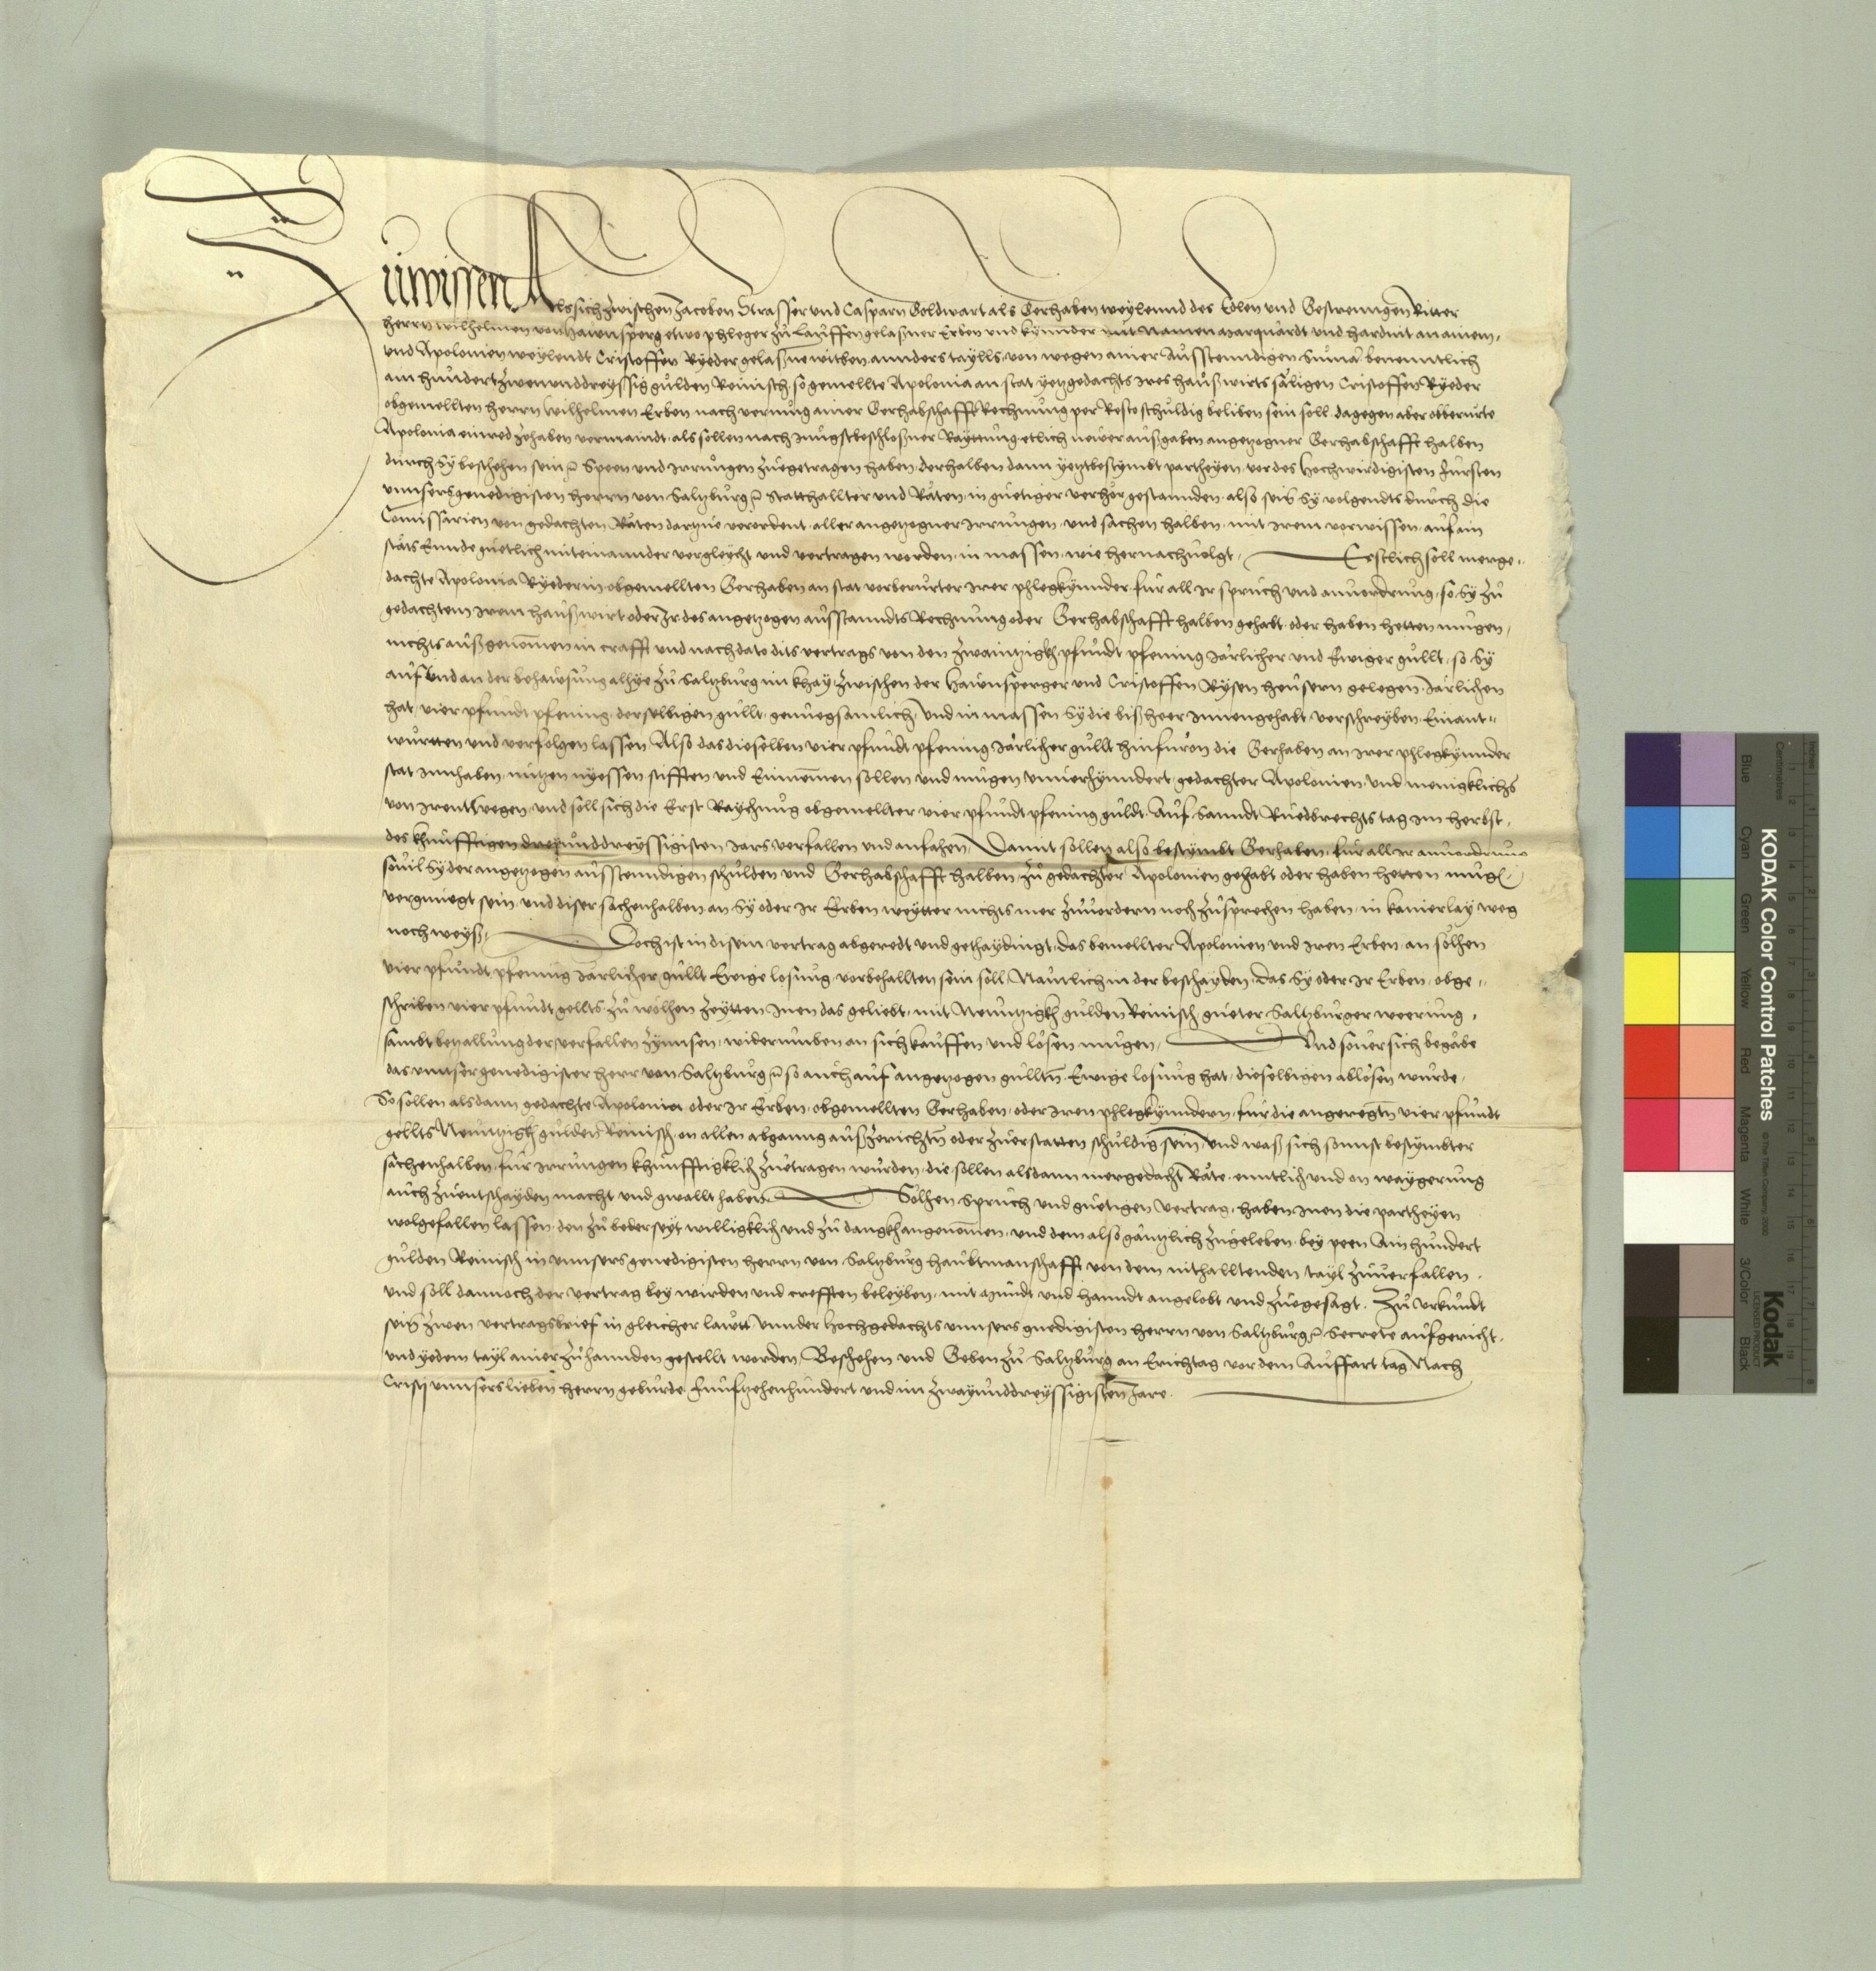 Zuwissen Als sich zwischen Jacoben Strasser und Casparn Goldwart als Gerhaben weylennd des Edlen und Gestrenngen Ritter
herrn Wilhelmen von Hawnsperg etwo phleger zu Lauffen gelaßner Erben und kynnder mit Namen Marquardt und Hardnit an ainem,
und Apolonien weylendt Cristoffen Ryeder gelaßne witben annders taylls, von wegen ainer Ausstenndigen Suma benenntlich
ain hundert zwenunddreyssig gulden Reinisch, so gemellte Apolonia an stat yetzgedachts Ires haußwirts säligen Cristoffen Ryeder
obgemellten herrn Wilhelmen Erben nach vermug ainer Gerhabschafft Rechnung per Resto schuldig beliben sein soll, dagegen aber obberurte
Apolonia einred zehaben vermaindt, als sollen nach Jungstbeschloßner Rayttung etlich newer außgaben angezogner Gerhabschafft halben
durch Sy beschehen sein etc. Speen und Irrungen zuegetragen haben, derhalben dann yetztbestymbt partheyen, vor des Hochwirdigisten Fursten
unnsers genedigisten herrn von Saltzburg etc. Statthallter und Räten, in guetiger verhör gestannden, also sein Sy volgendts durch die
Comissarien von gedachten Räten dartzue verordent, aller angetzogner Irrungen, und sachen halben, mit Irem vorwissen, auf ain
stäts Ennde guetlich miteinannder vergleycht und vertragen worden, in massen, wie hernachvolgt, Erstlich soll merge-
dachte Apolonia Ryederin obgemellten Gerhaben an stat vorberurter Irer phlegkynnder, fur all Ir spruch und anvordrung, so Sy zu
gedachtem Irem haußwirt oder Ir des angetzogen ausstanndts Rechnung oder Gerhabschafft halben gehabt, oder haben hetten mugen,
nichts außgenomen in crafft und nach dato dits vertrags von den zwaintzigkh pfundt pfening Järlicher und Ewiger gullt, so Sy
auf und an der behawsung alhye zu Saltzburg im khay zwischen der Hawnsperger und Cristoffen Rysen hewsern gelegen, Järlichen
hat, vier pfundt pfening derselbigen gullt, genuegsamlich, und in massen Sy die bißheer Innengehabt, verschreyben, Einant-
wurtten und verfolgen lassen, Also das dieselben vier pfundt pfening Järlicher gullt hinfuron die Gerhaben an Irer phlegkynnder
stat Innhaben, nutzen nyessen stifften und Einnemen sollen und mugen unverhynndert, gedachter Apolonien, und menigklichs
von Irentwegen, und soll sich die Erst Raychung obgemellter vier pfundt pfening guldt, Auf Sanndt Ruedbrechts tag im herbst,
des khunfftigen dreyunddreyssigisten Jars verfallen und anfahen, Damit sollen also bestymbt Gerhaben, fur all Ir anvordrung
sovil Sy der angetzogen ausstenndigen schulden und Gerhabschafft halben, zu gedachter Apolonien gehabt oder haben hetten mugen
vergnuegt sein, und diser sachenhalben an Sy oder Ir Erben weytter nichts mer zuvordern noch zusprechen haben, in kainerlay weg
noch weyß, Doch ist in disem vertrag abgeredt und gethaydingt, das bemellter Apolonien und Iren Erben, an solhen
vier pfundt pfening Järlicher gullt Ewige losung vorbehallten sein soll, Nämlich in der beschayden, das Sy oder Ir Erben, obge-
schriben vier pfundt gellts, zu wolhen zeytten Inen das geliebt, mit Neuntzigkh gulden Reinisch gueter Saltzburger weerung,
sambt betzallung der verfallen zynnsen, widerumben an sich kauffen und losen mugen, Und sover sich begäbe
das unnser genedigister herr von Saltzburg etc. so auch auf angetzogen gulltn Ewige losung hat, dieselbigen ablosen wurde,
So sollen alsdann gedachte Apolonia oder Ir Erben, obgemellten Gerhaben, oder Iren phlegkynndern, fur die angeregtn vier pfundt
gellts Neuntzigkh gulden Reinisch, on allen abganng außzerichtn oder zuerstatten schuldig sein, und waß sich sonnst bestymbter
sachenhalben fur Irrungen khunfftigklich zuetragen wurden, die sollen alsdann mergedacht Räte, enntlich und on waygerung
auch zuentschayden macht und gwallt haben. Solhen Spruch und guetigen vertrag, haben Inen die partheyen
wolgefallen lassen, den zu bederseyt willigklich und zu dangkh angenomen, und dem also gäntzlich zugeleben, bey peen Ain hundert
gulden Reinisch in unnsers genedigisten herrn von Saltzburg haubtmanschafft von dem nithalltenden tayl zuverfallen,
und soll dannoch der vertrag bey wirden und crefften beleyben, mit Mundt und hanndt angelobt und zuegesagt. Zu Urkundt
sein zwen vertragsbrief in gleicher lautt unnder hochgedachts unnsers gnedigisten herrn von Saltzburg etc. Secrete aufgericht,
und yedem tayl ainer zu hannden gestellt worden, Beschehen und Geben zu Saltzburg an Erichtag vor dem Auffart tag Nach
Cristj unnsers lieben herrn geburde, funfftzehenhundert und im zwayunddreyssigisten Jare.